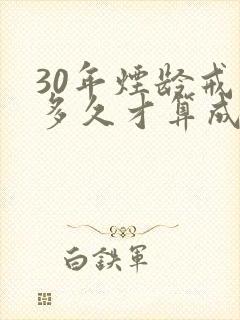 30年煙龄戒
多久才算成
白鉄軍